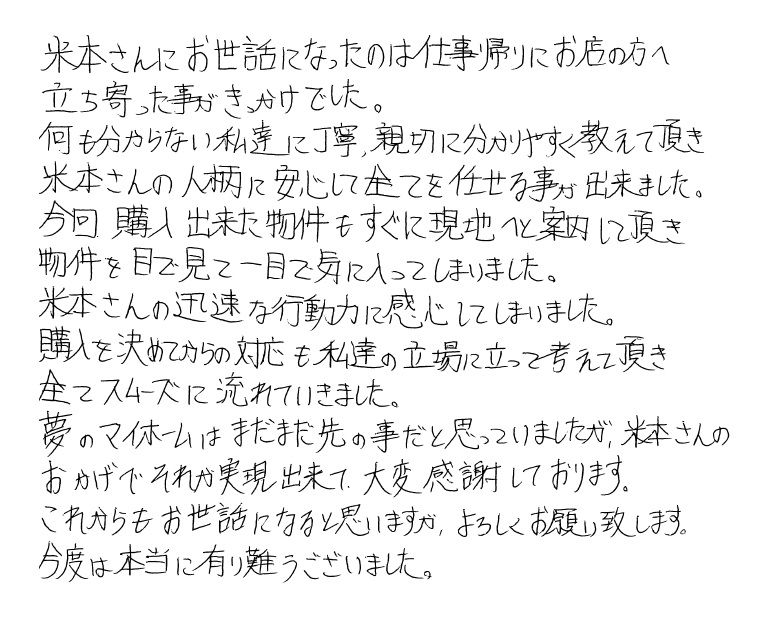 米本さんにお世話になったのは仕事帰りにお店の方へ
立ち寄った事がきっかけでした。
何も分からない私達に丁寧,親切に分かりやすく教えて頂き
米本さんの人柄に安心して全てを任せる事が出来ました。
今回購入出来た物件もすぐに現地へと案内して頂き
物件を目で見て一目で気に入ってしまいました。
米本さんの迅速な行動力に感心してしまいました。
購入を決めてからの対応も私達の立場に立って考えて頂き
全てスムーズに流れていきました。
夢のマイホームはまだまだ先の事だと思っていましたが,米本さんの
おかげでそれが実現出来て、大変感謝しております。
これからもお世話になると思いますが,よろしくお願い致します。
今度は本当に有り難うございました。